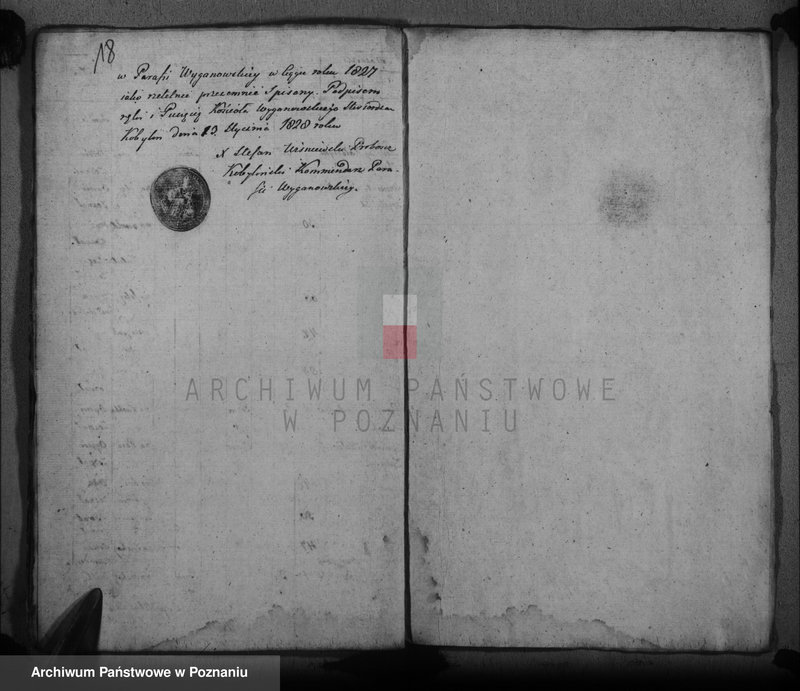 18
w Parafii Wyganowskiey w ciągu roku 1827
iako rzetelnie przezemnie Spisany. Podpisem
ręki i Pieczęcią Kościoła Wyganowskiego Stwierdzam
Kobylin dnia 23 Stycznia 1828 roku
X Stefan Proboszcz
Kobyliński Kommendarz Para-
fii Wyganowskiey.
ARCHIWUM PAŃSTWOWE
W POZNANIU
Archiwum Państwowe w Poznaniu